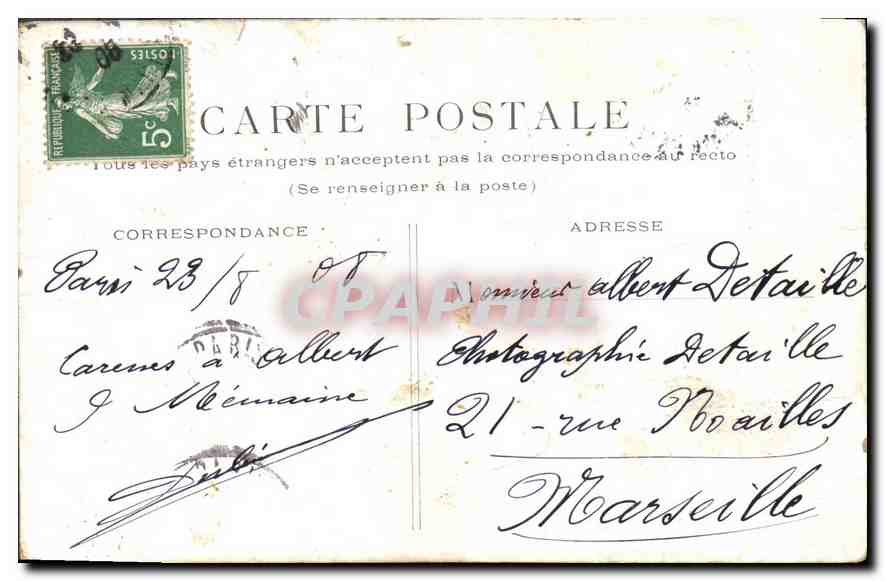 RÉPUBLIQUE FRANÇAISE
POSTES
5c
CARTE POSTALE
Tous les pays étrangers n'acceptent pas la correspondance au recto
(Se renseigner à la poste)
CORRESPONDANCE
Paris 23/8 08
PARIS
Caresses à Albert
& Mémaine
ADRESSE
Monsieur Albert Detaille
Photographie Detaille
21 - rue Noailles
Marseille
CPAPHIL